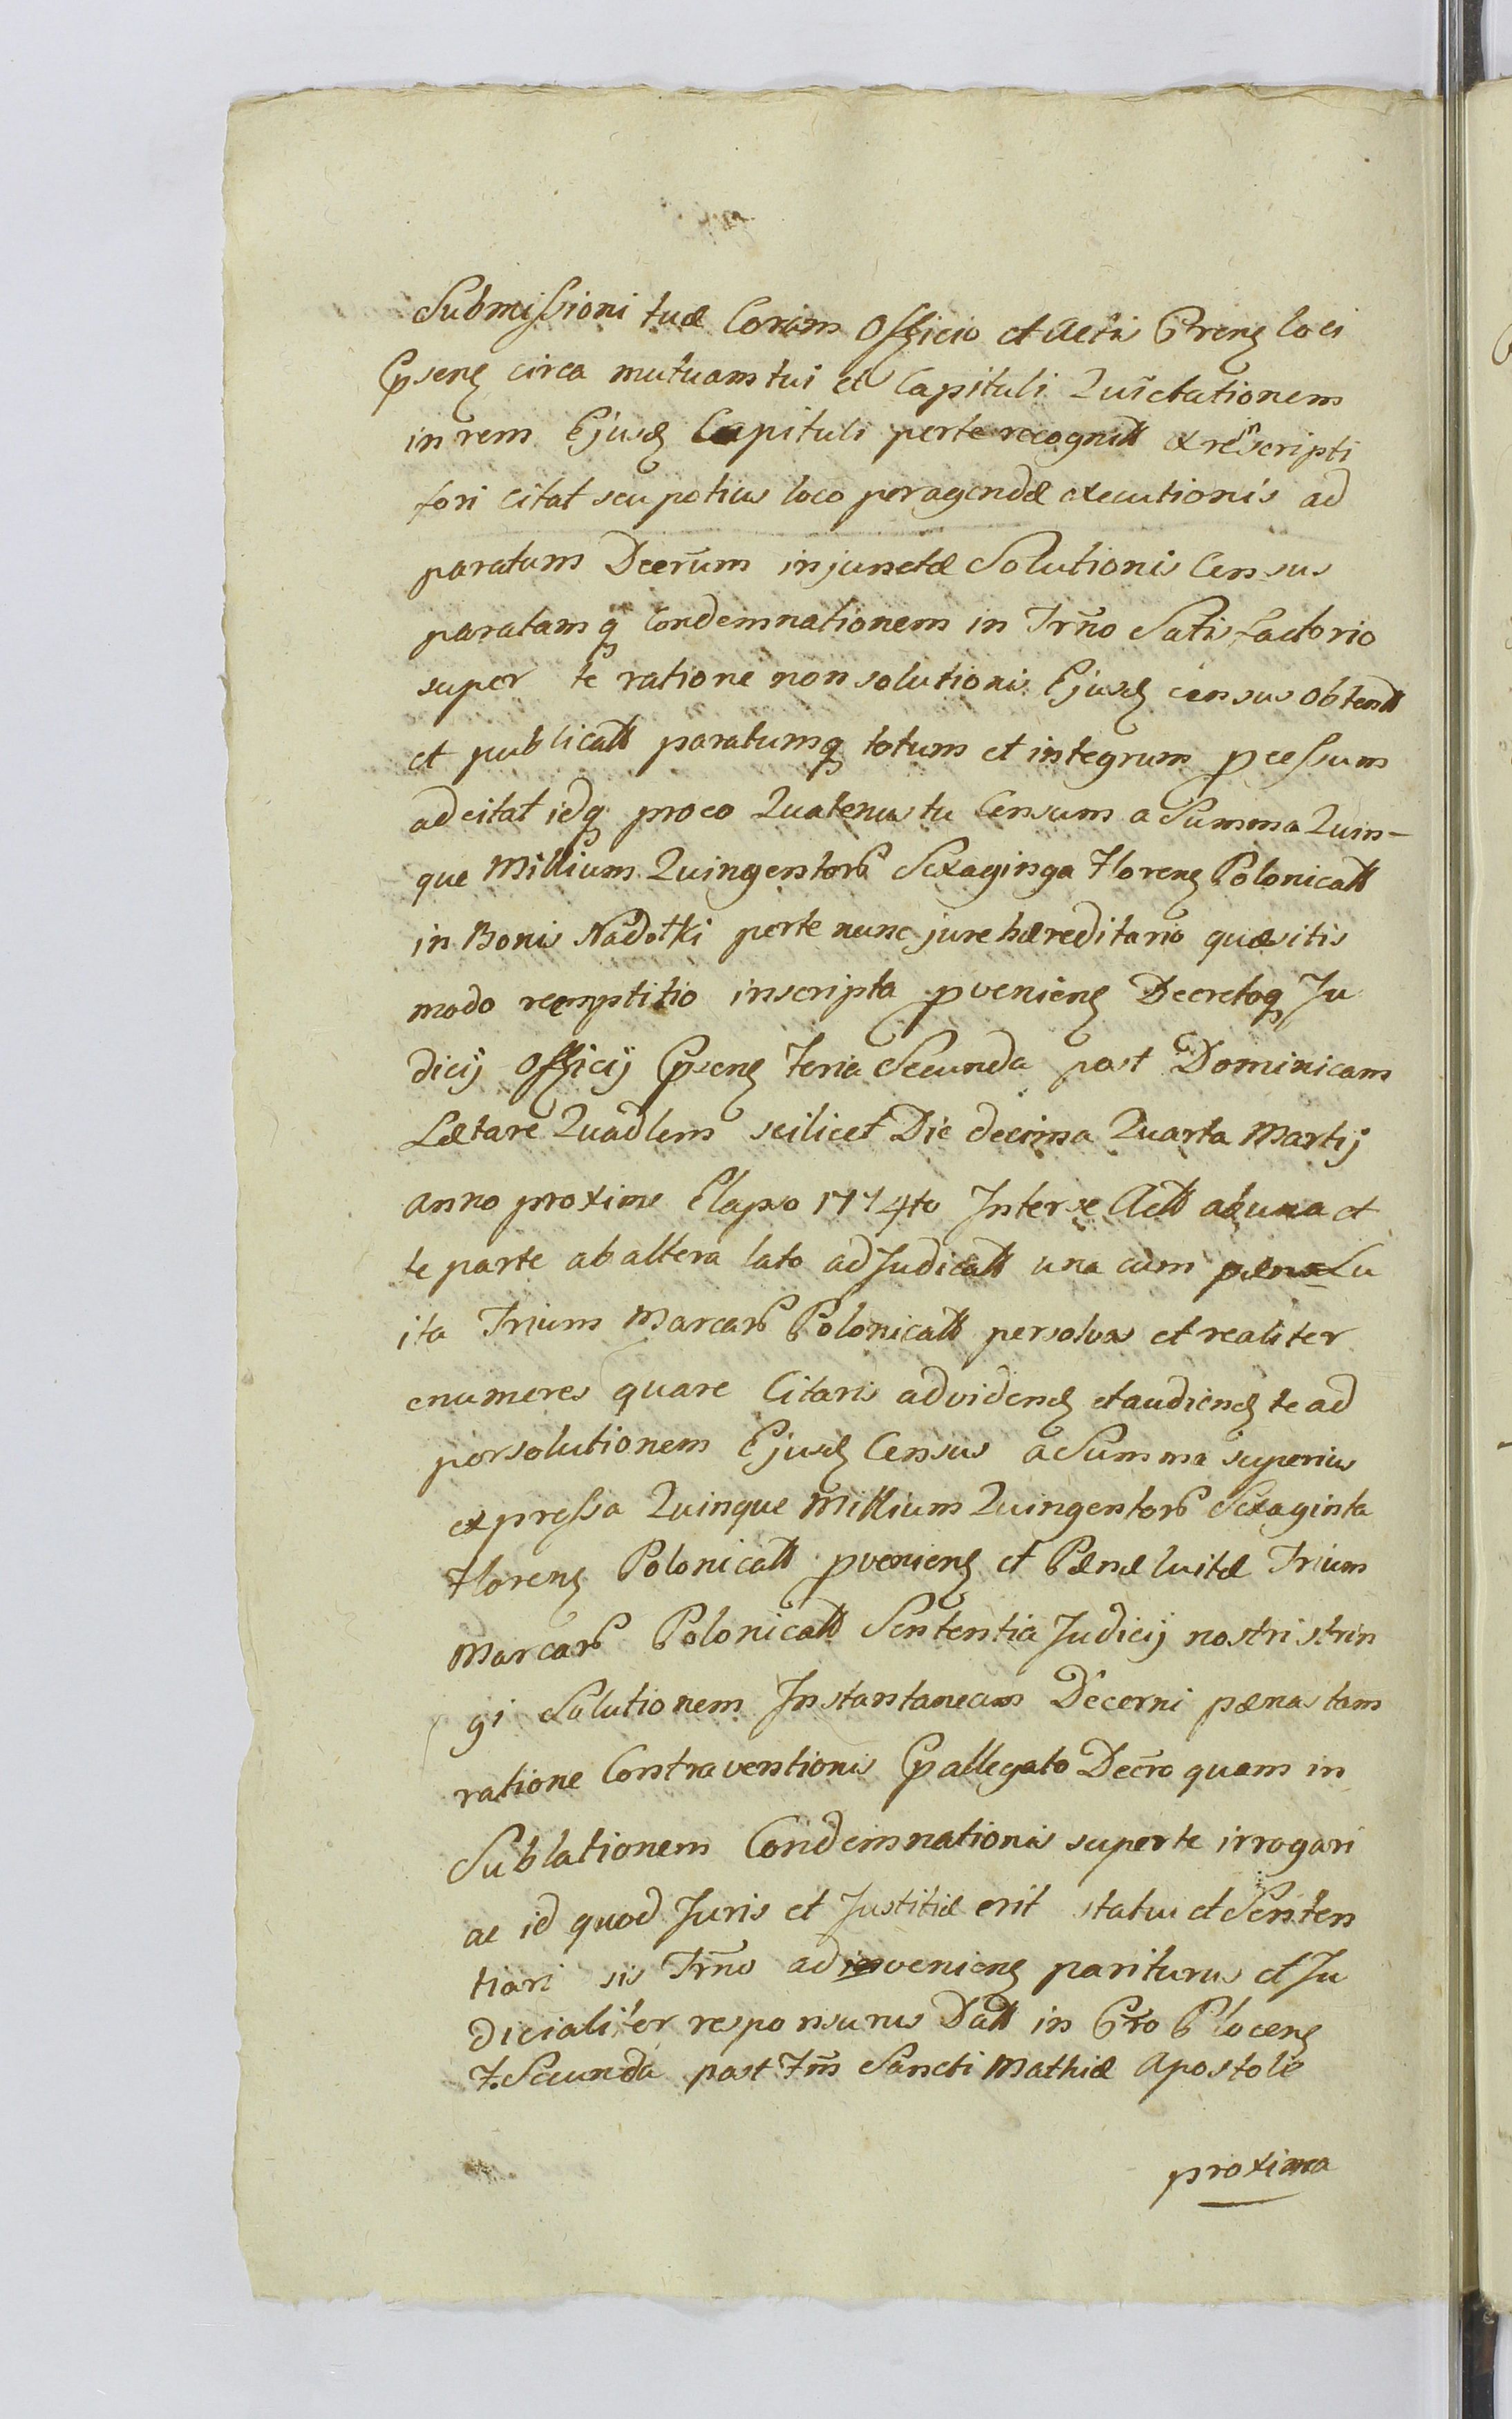 Submissioni tuæ Coram Officio et Actis Ctren loci
Pnsen circa mutuam tui et Capituli Quietationem
in rem Ejusd Capituli per te recognitt ex re nscripti
fori citat seu potius loco peragendæ executionis ad
paratum Decrūm injunctæ Solutionis Census
paratamq Condemnationem in Trno Satisfactorio
super te ratione non solutionis Ejusd census obtentt
et publicatt paratumq totum et integrum pcessum
adcitat idq pro eo Quatenus tu Censum a Summa Quin-
que Millium Quingentorb Sexaginga Floren Polonicatt
in Bonis Nadołki per te nunc jure hæreditario quæsitis
modo reemptitio inscripta pvenien Decretoq Ju
dicij Officij Pnsen Feria Secunda post Dominicam
Lætare Quadlem scilicet Die decima Quarta Martij
anno proxime Elapso 1774to Inter se Actt ab una et
te parte ab altera lato adJudicatt una cum pæna Lu
ita Trium Marcarb Polonicatt persolvas et realiter
enumeres quare Citaris ad vidend et audiend te ad
persolutionem Ejusd Census a Summa superius
expressa Quinque Millium Quingentorb Sexaginta
Floren Polonicatt pvenien et Pænæ luitæ Trium
Marcarb Polonicatt Sententia Judicij nostri strin
gi Solutionem Instantaneam Decerni pænas tam
ratione Contraventionis Pallegato Decro quam in
Sublationem Condemnationis super te irrogari
ac id quod Juris et Justitiæ erit statui et Senten
tiari sis Trno ad invenien pariturus et Ju
dicialiter responsurus Datt in Ctro Plocen
F. Secunda post Fm Sancti Mathiæ Apostoli
proxima